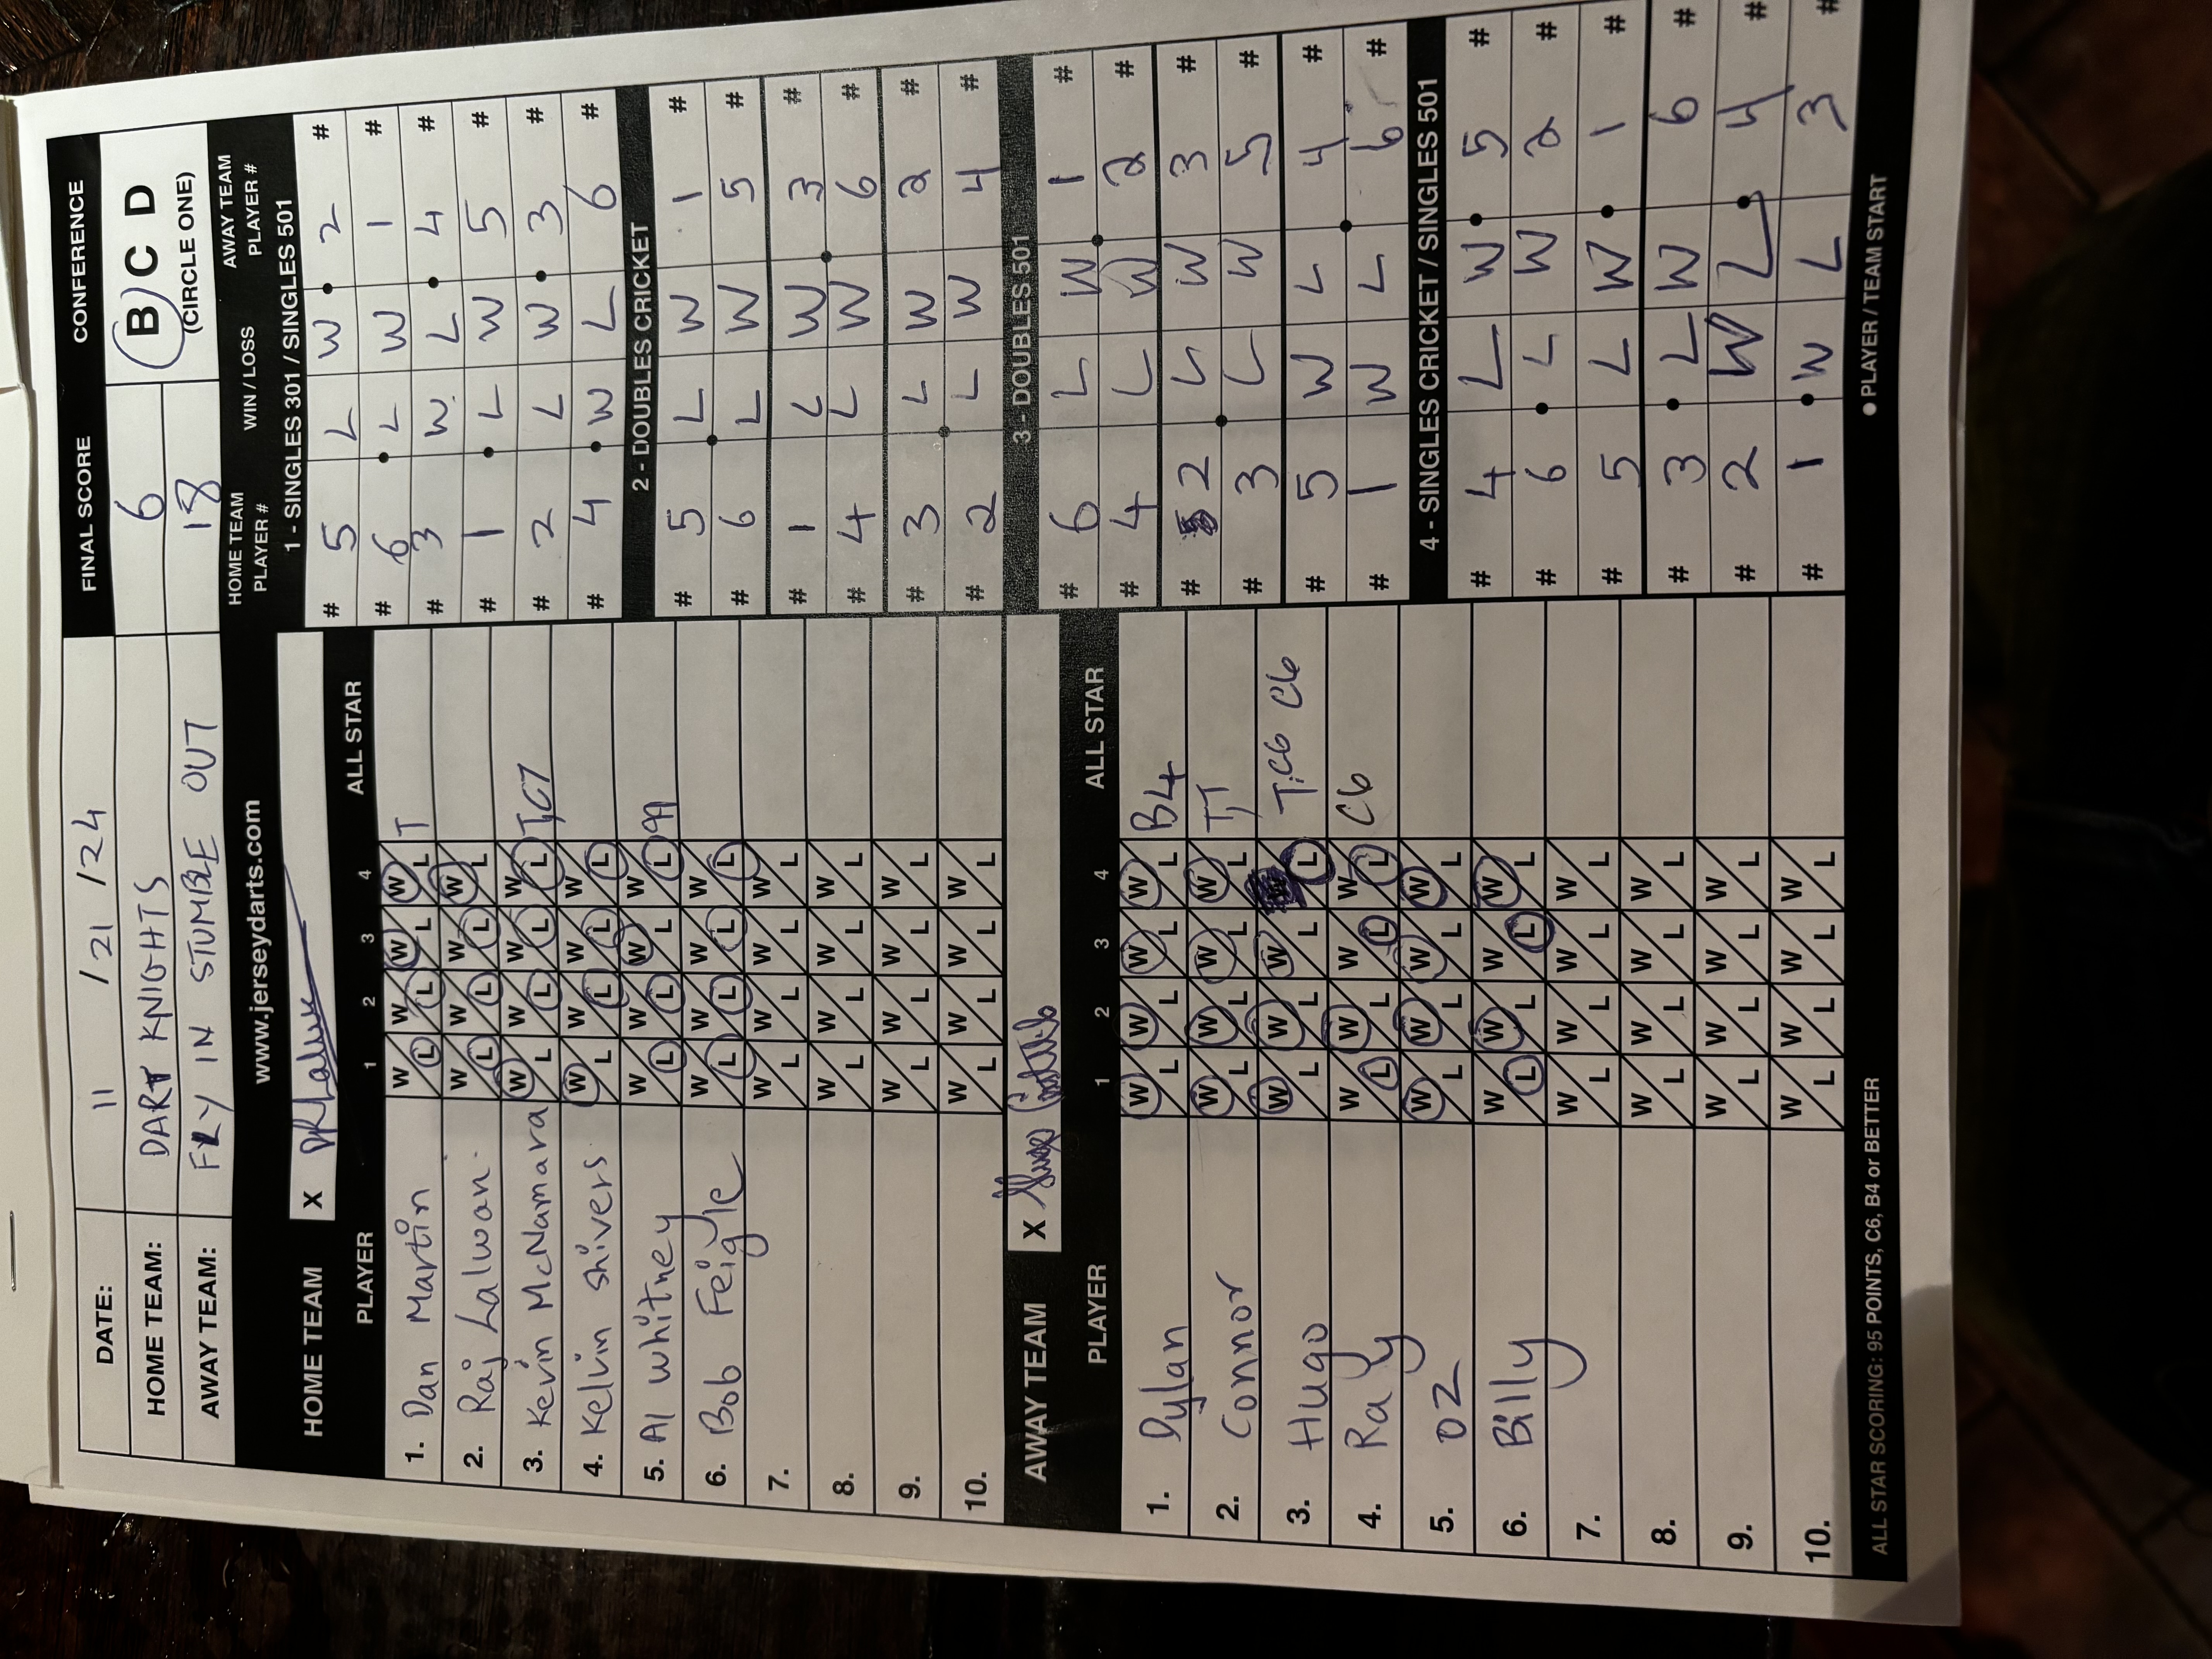 DATE: 11 / 21 / 24 FINAL SCORE CONFERENCE
HOME TEAM: DART KNIGHTS 6 B C D
AWAY TEAM: FLY IN STUMBLE OUT 18 (CIRCLE ONE)
www.jerseydarts.com
HOME TEAM X
PLAYER 1 2 3 4 ALL STAR
1. Dan Martin W/L W/L W/L W/L T
2. Raj Lalwani W/L W/L W/L W/L
3. Kevin McNamara W/L W/L W/L W/L T,C7
4. Kelvin Shivers W/L W/L W/L W/L
5. Al Whitney W/L W/L W/L W/L 99
6. Bob Feigle W/L W/L W/L W/L
7. W/L W/L W/L W/L
8. W/L W/L W/L W/L
9. W/L W/L W/L W/L
10. W/L W/L W/L W/L
AWAY TEAM X
PLAYER 1 2 3 4 ALL STAR
1. Dylan W/L W/L W/L W/L B4
2. Connor W/L W/L W/L W/L T,T
3. Hugo W/L W/L W/L W/L T,C6 C6
4. Ray W/L W/L W/L W/L C6
5. OZ W/L W/L W/L W/L
6. Billy W/L W/L W/L W/L
7. W/L W/L W/L W/L
8. W/L W/L W/L W/L
9. W/L W/L W/L W/L
10. W/L W/L W/L W/L
ALL STAR SCORING: 95 POINTS, C6, B4 or BETTER
HOME TEAM PLAYER # WIN / LOSS AWAY TEAM PLAYER #
1 - SINGLES 301 / SINGLES 501
# 5 L W 2 #
# 6 L W 1 #
# 3 W L 4 #
# 1 L W 5 #
# 2 L W 3 #
# 4 W L 6 #
2 - DOUBLES CRICKET
# 5 L W 1 #
# 6 L W 5 #
# 1 L W 3 #
# 4 L W 6 #
# 3 L W 2 #
# 2 L W 4 #
3 - DOUBLES 501
# 6 L W 1 #
# 4 L W 2 #
# 2 L W 3 #
# 3 L W 5 #
# 5 W L 4 #
# 1 W L 6 #
4 - SINGLES CRICKET / SINGLES 501
# 4 L W 5 #
# 6 L W 2 #
# 5 L W 1 #
# 3 L W 6 #
# 2 W L 4 #
# 1 W L 3 #
● PLAYER / TEAM START